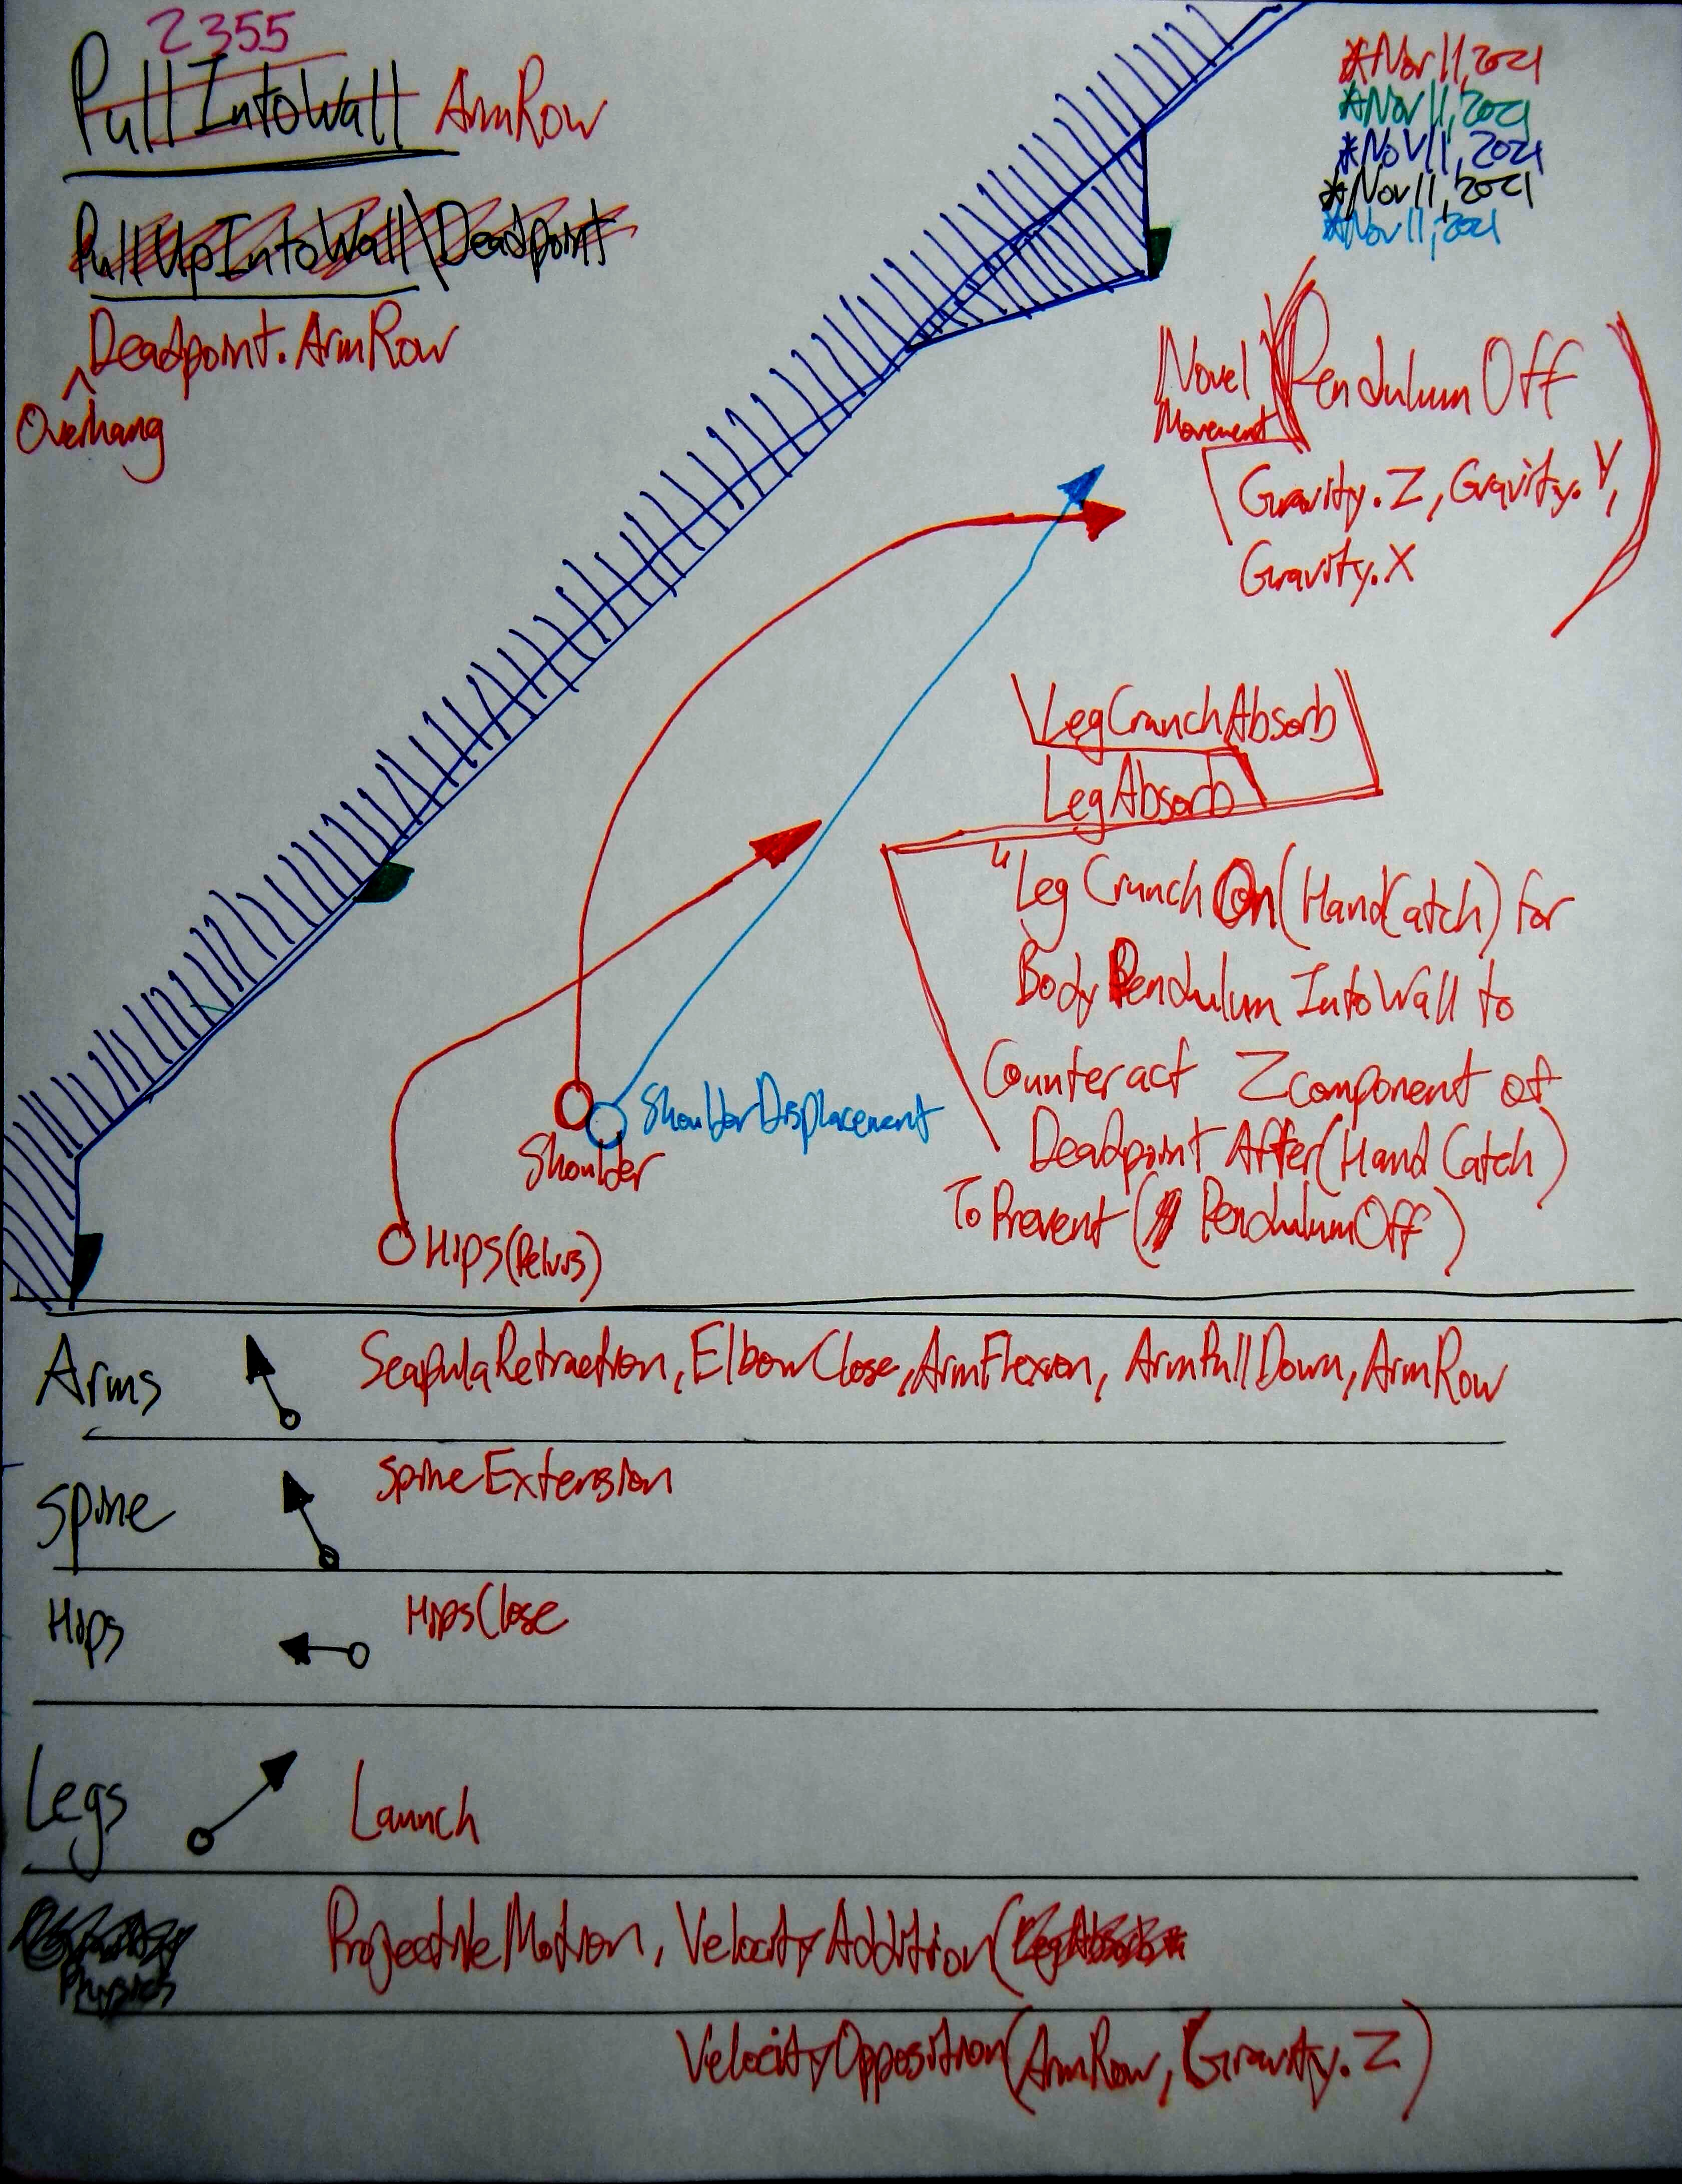 2355
PullIntoWall ArmRow
PullUpIntoWall\Deadpoint
Deadpoint.ArmRow
^
Overhang
*Nov 11, 2021
*Nov 11, 2021
*Nov 11, 2021
*Nov 11, 2021
*Nov 11, 2021
Novel
Movement
PendulumOff
Gravity.Z, Gravity.Y,
Gravity.X
LegCrunchAbsorb
LegAbsorb
"Leg Crunch On(HandCatch) for
Body Pendulum IntoWall to
Counteract Zcomponent of
Deadpoint After(Hand Catch)
To Prevent( PendulumOff)
ShoulderDisplacement
Shoulder
Hips(Pelvis)
Arms ScapulaRetraction, ElbowClose, ArmFlexion, ArmPullDown, ArmRow
Spine SpineExtension
Hips HipsClose
Legs Launch
Physics ProjectileMotion, VelocityAddition(
VelocityOpposition(ArmRow, Gravity.Z)